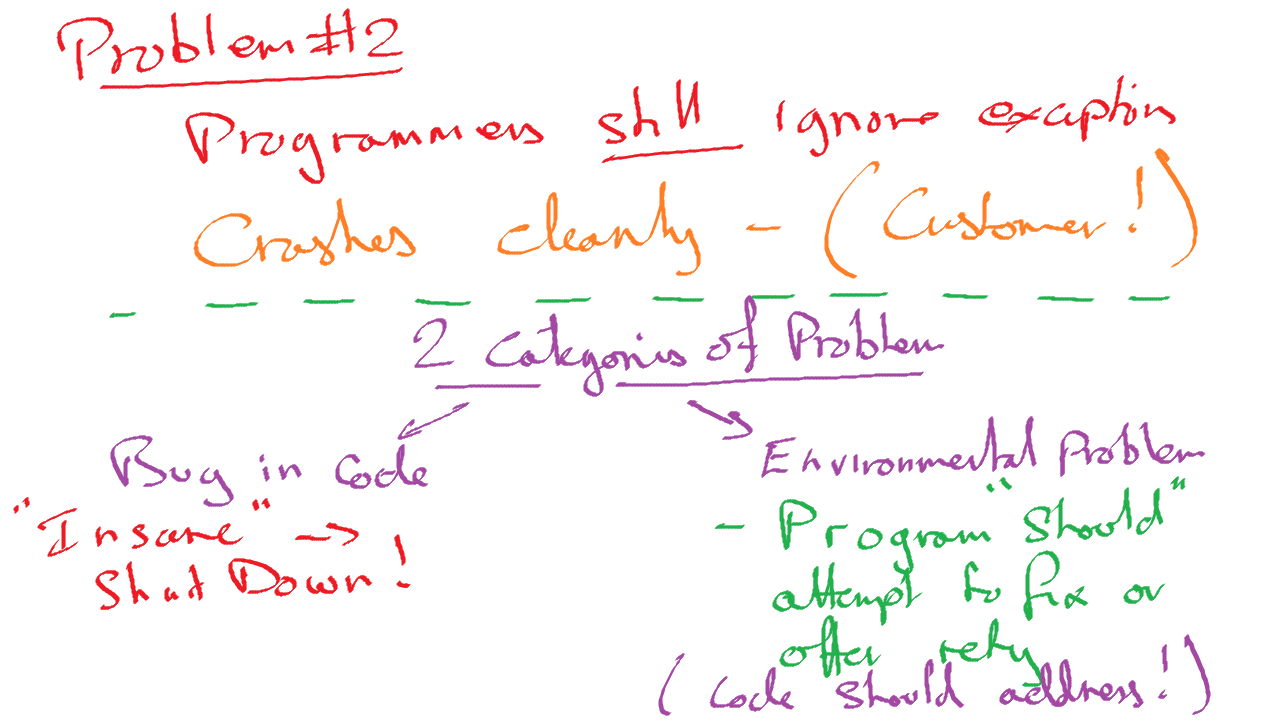 Problem #2
Programmers still ignore exceptions
Crashes cleanly - (Customer!)
2 Categories of Problem
Bug in code
"Insane" ->
Shut Down!
Environmental Problem
- Program "should"
attempt to fix or
offer retry
(code should address!)